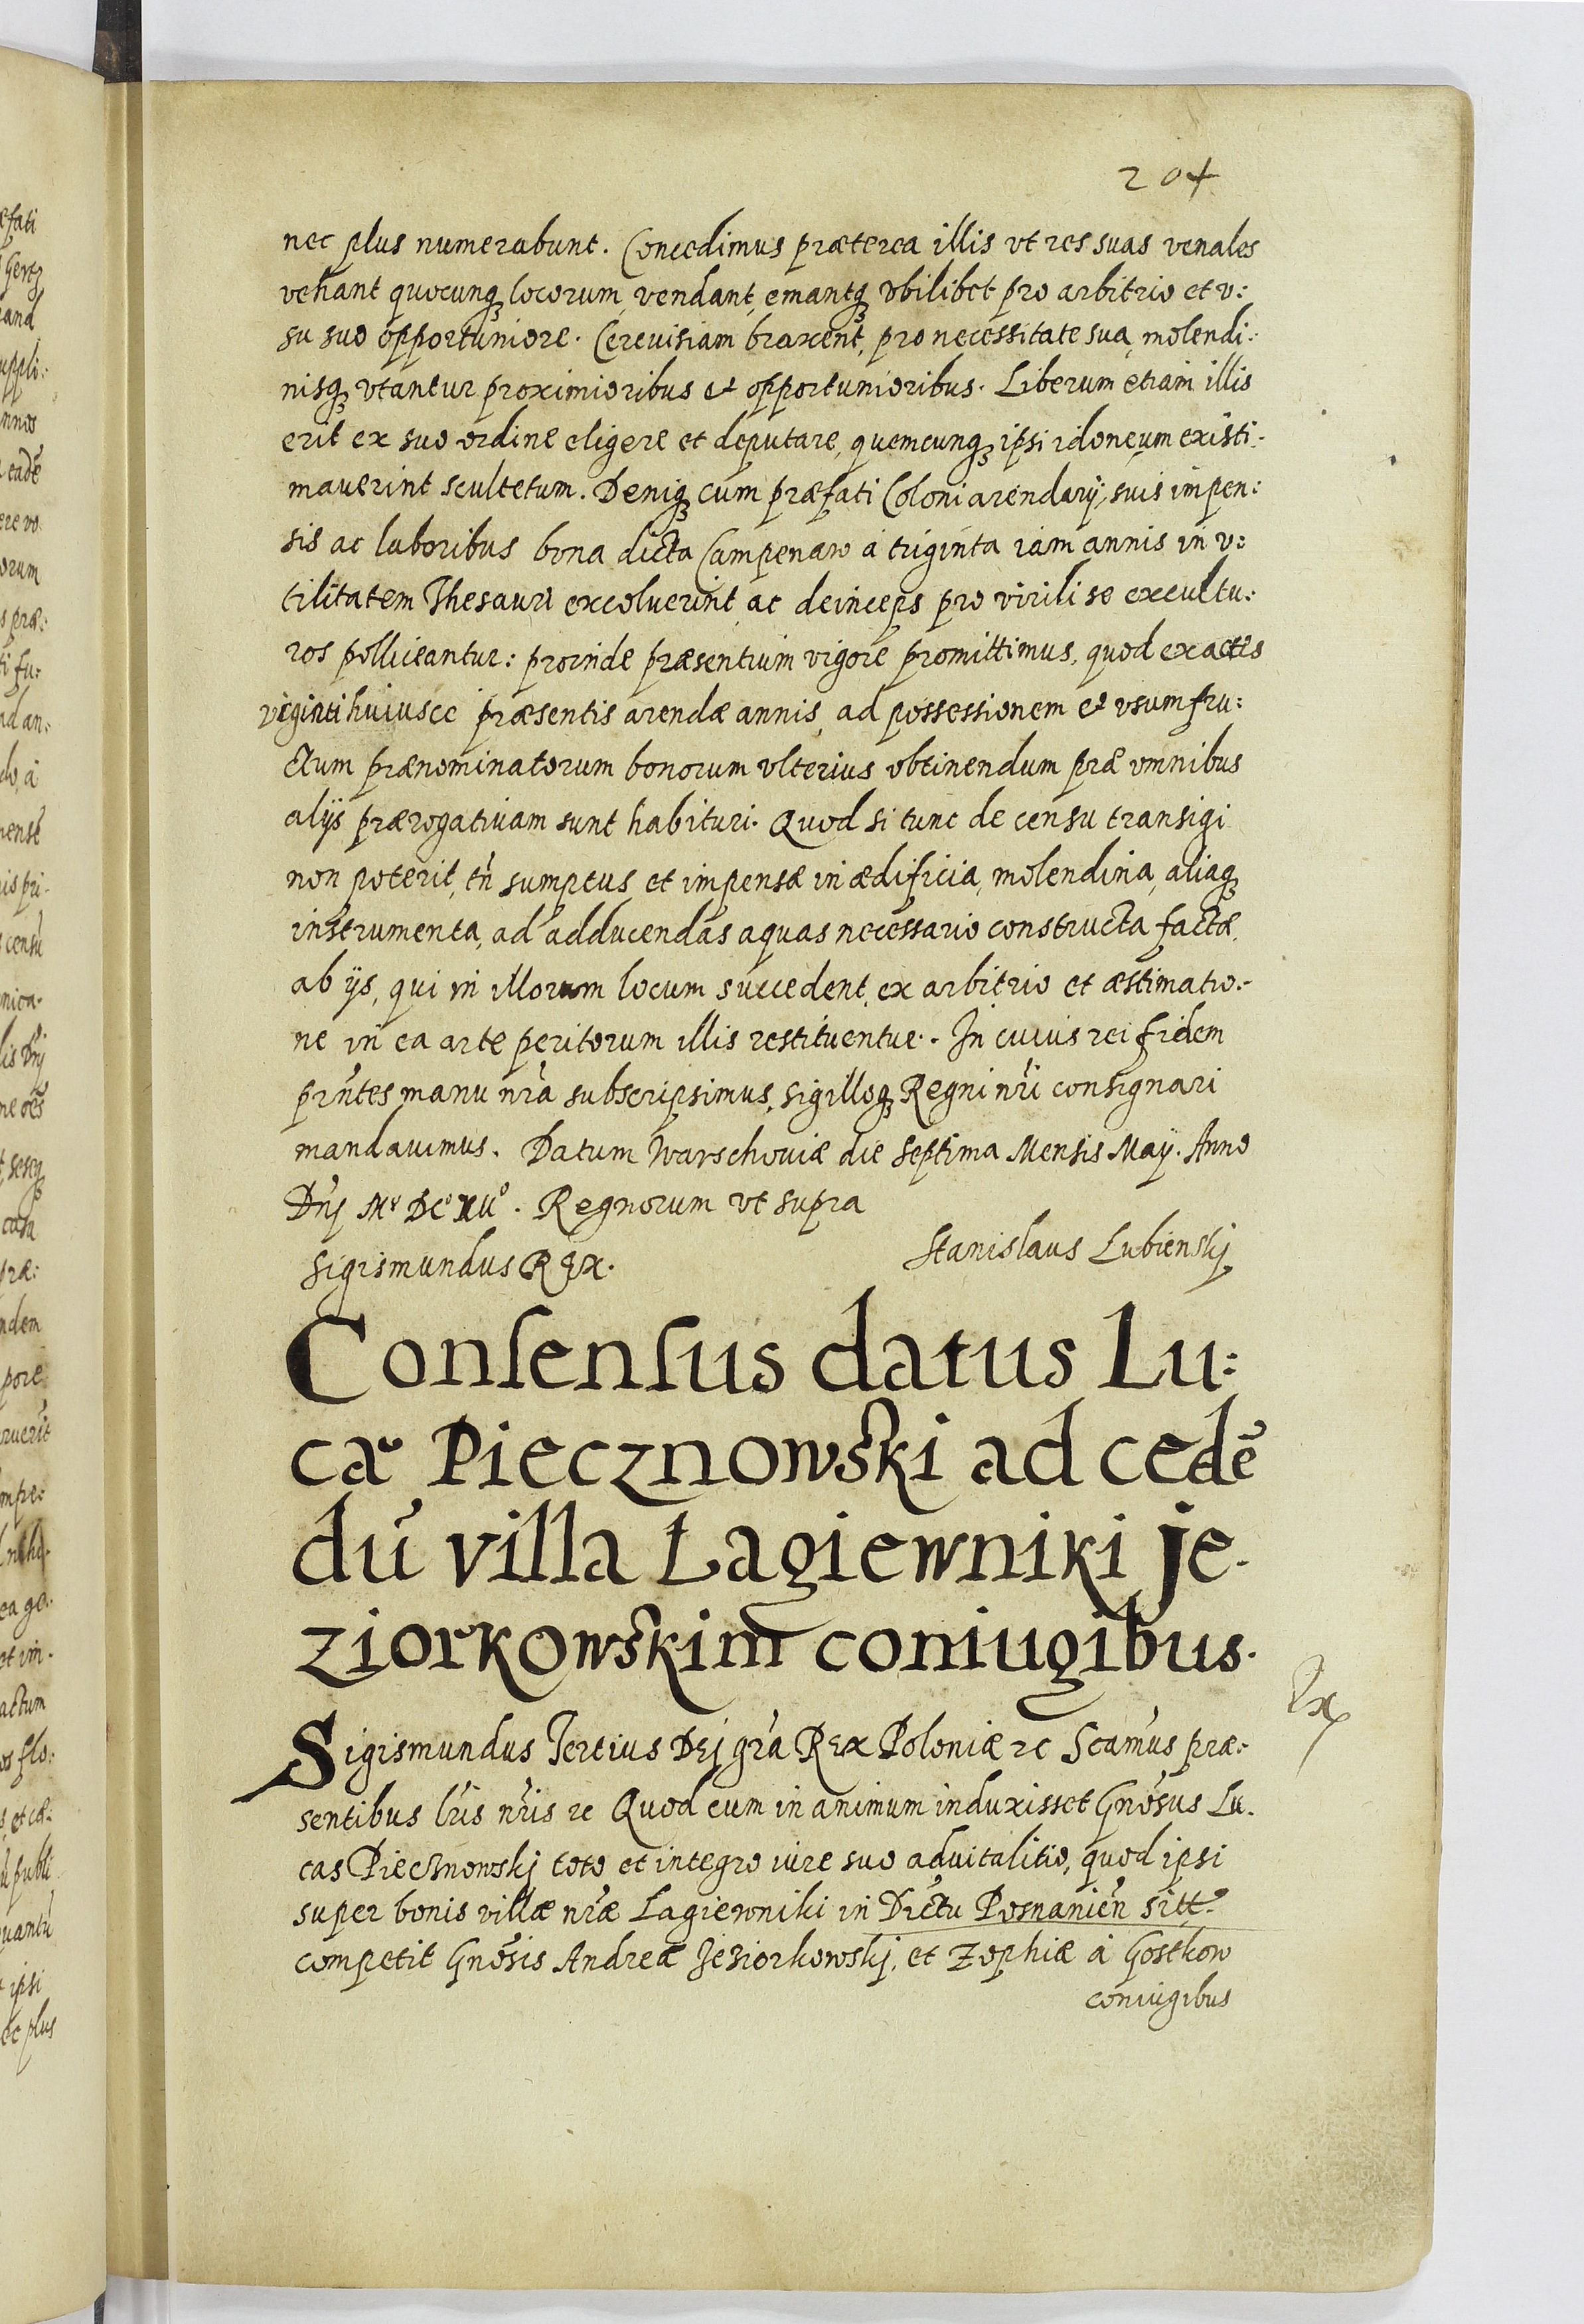 204
nec plus numerabunt. Concedimus præterea illis vt res suas venales
vehant quocunq₃ locorum, vendant, emantq₃ vbilibet pro arbitrio et v:
su suo opportuniore. Cereuisiam braxent, pro necessitate sua, molendi:
nisq₃ vtantur proximioribus et opportunioribus. Liberum etiam illis
erit ex suo ordine eligere et deputare, quemcunq₃ ipsi idoneum existi:
mauerint scultetum. Deniq₃ cum præfati Coloni arendarij, suis impen:
sis ac laboribus bona dicta Campenaw á triginta iam annis in v:
tilitatem Thesauri excoluerint, ac deinceps pro virili se excultu:
ros polliceantur: proinde præsentium vigore promittimus, quod exactis
viginti huiusce præsentis arendæ annis, ad possessionem et vsumfru:
ctum prænominatorum bonorum vlterius obtinendum præ omnibus
alijs prærogatiuam sunt habituri. Quod si tunc de censu transigi
non poterit, tñ sumptus et impensæ in ædificia, molendina, aliaq₃
instrumenta, ad adducendas aquas necessario constructa factæ,
ab ijs, qui in illorum locum succedent, ex arbitrio et æstimatio:
ne in ea arte peritorum illis restituentur. In cuius rei fidem
pñtes manu nrã subscripsimus, sigilloq₃ Regni nrĩ consignari
mandauimus. Datum Warschouiæ die Septima Mensis Maij. Anno
Dñj Mº DCº XVº. Regnorum vt supra
Sigismundus REX.
Stanislaus Lubienskj
Consensus datus Lu:
cæ Piecznowski ad cedẽ
dũ villa Łagiewniki je:
ziorkowskim coniugibus.
Rx
Sigismundus Tertius Dej grã Rex Poloniæ etc Scamũs præ:
sentibus lrĩs nrĩs etc Quod cum in animum induxisset Gnõsus Lu:
cas Piecznowskj toto et integro iure suo aduitalitio, quod ipsi
super bonis villæ nræ Lagiewniki in Dictu Posnanieñ sitt.
competit Gnõsis Andreæ Jeziorkowskj, et Zophiæ á Gostkow
coniugibus